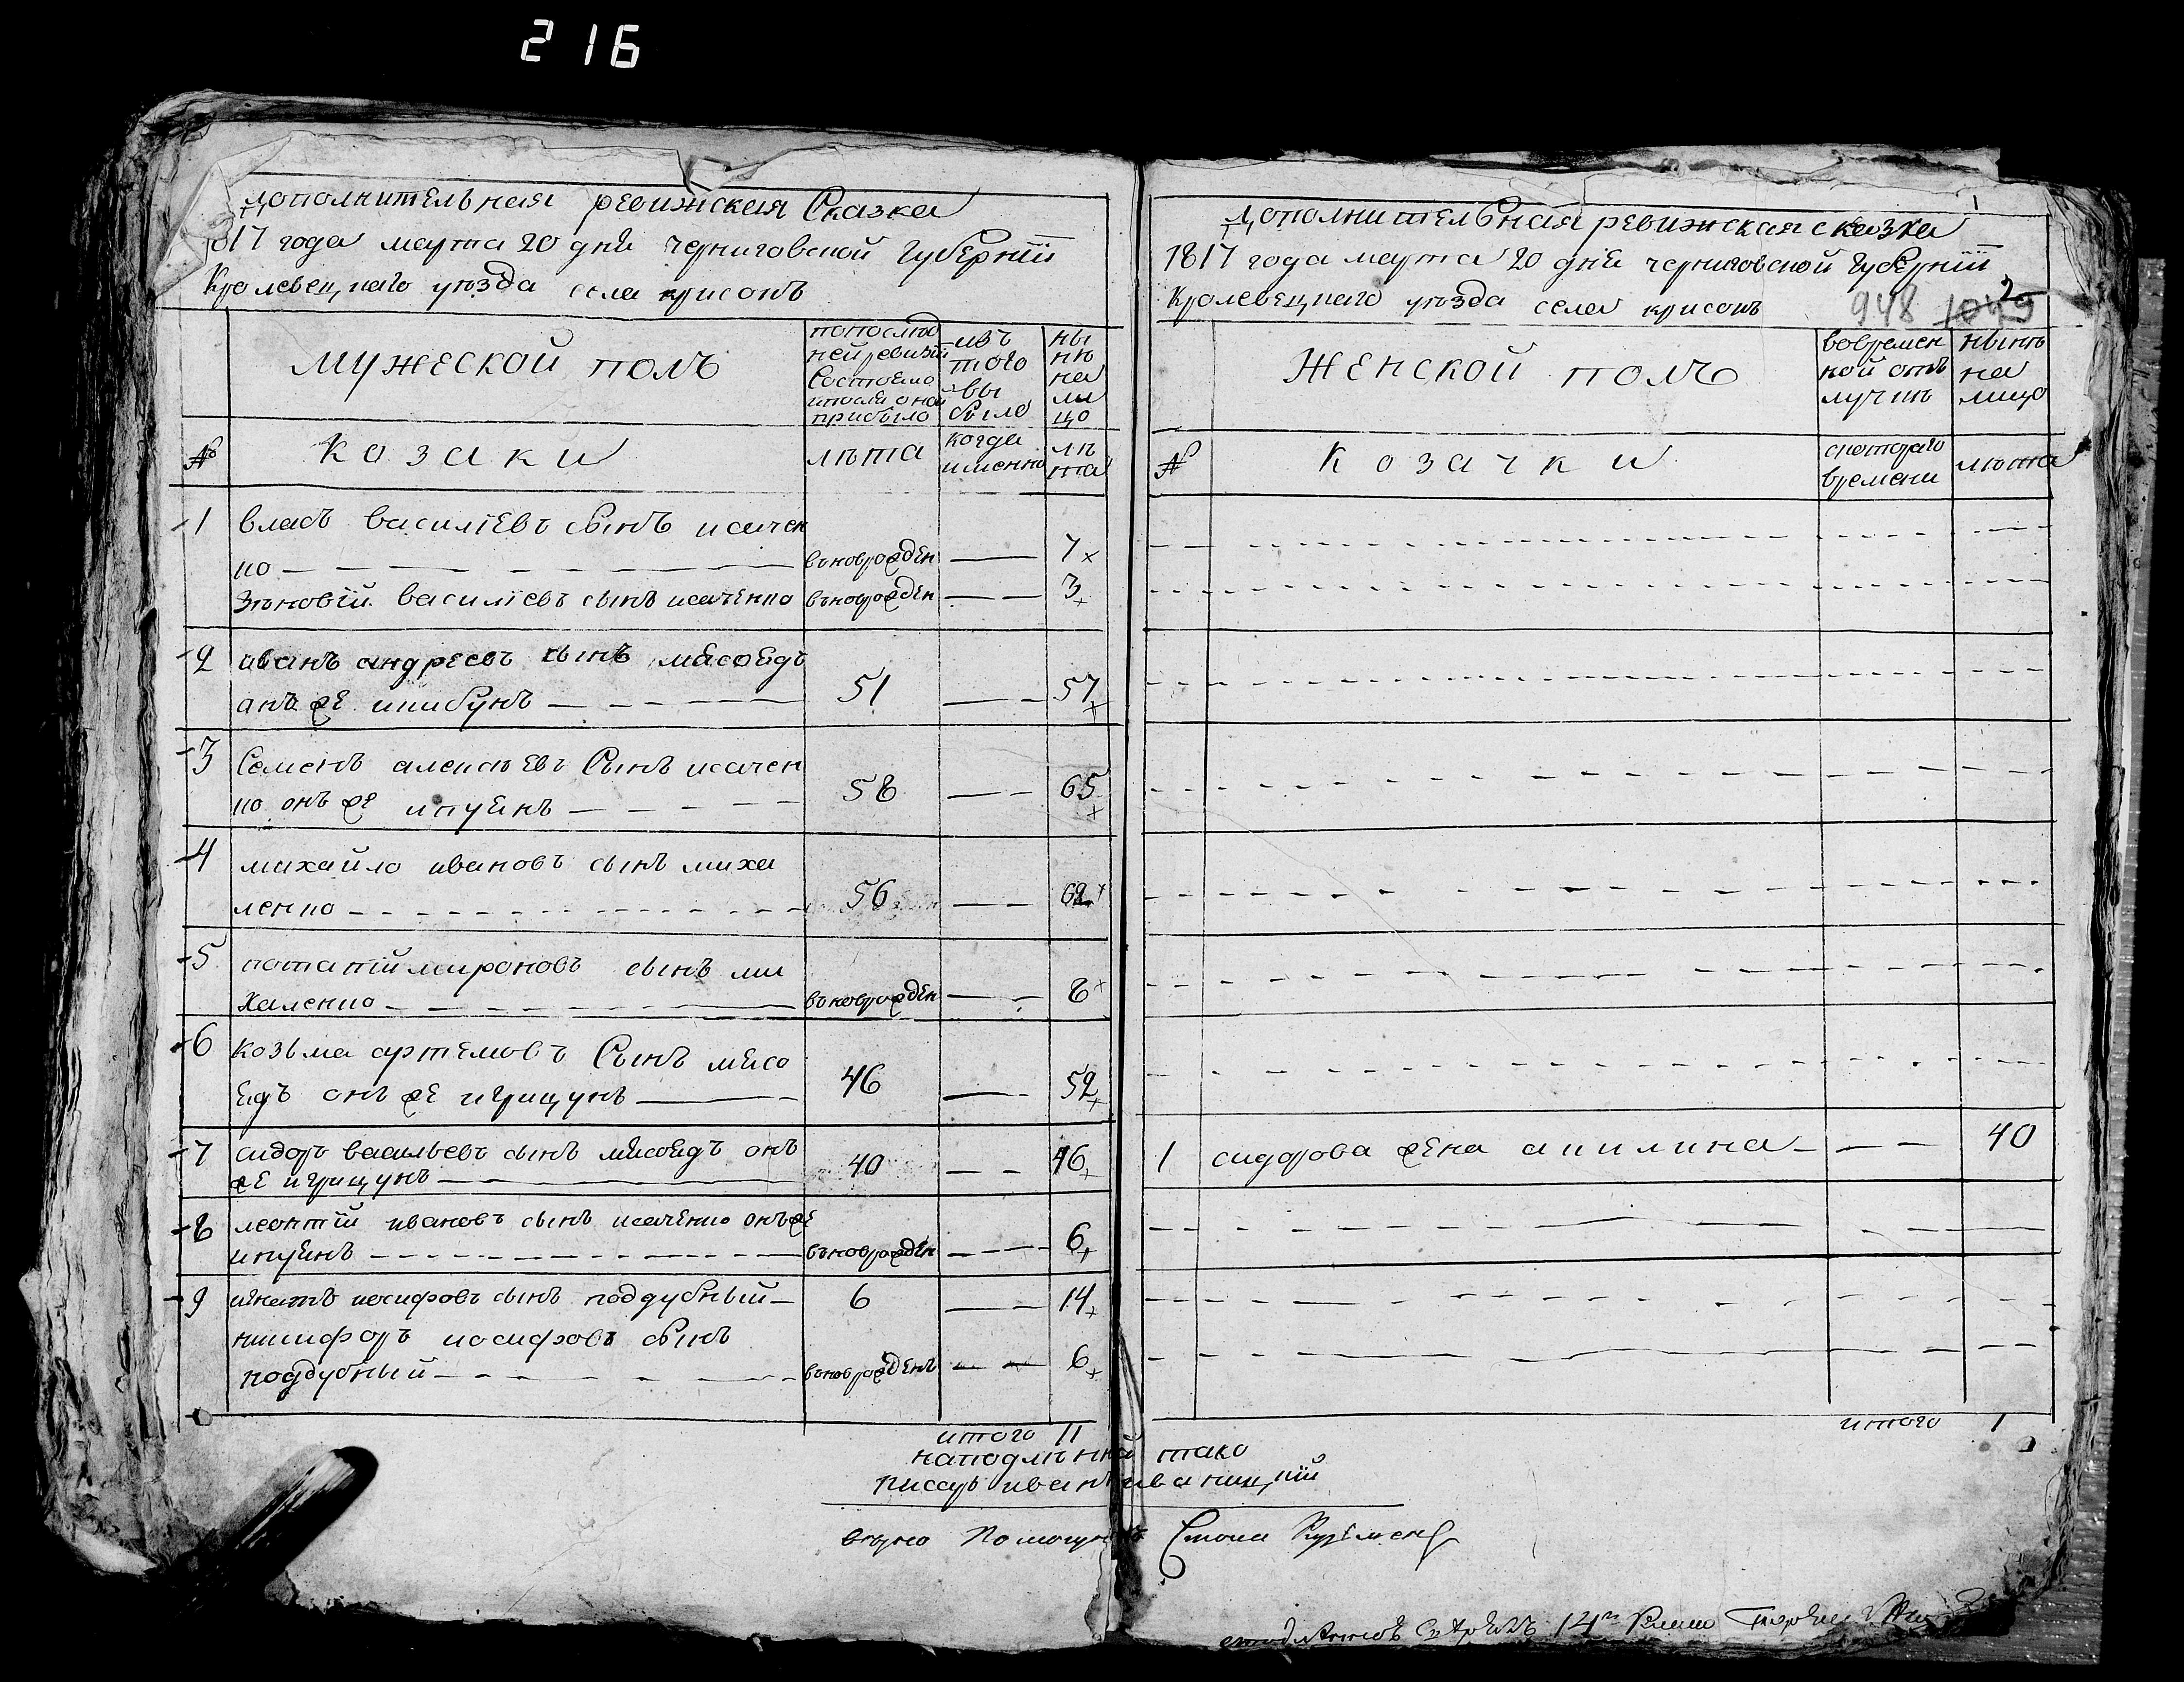 216
дополнителъная ревижская Сказка
817 года марта 20 дня черниговской Губернїи
Кролевецкаго уезда села крисокъ
мужеской полъ
попослѣд
ней ревизїи
Состояло
ипосля оной
прибыло
изъ
того
вы
было
ны
нѣ
на
ли
цо
№
козаки
лѣта
когда
именно
лѣ
та
1 власъ василїевъ сынъ исачен
ко вьноврожден 7
Зѣновїй василїевъ сынъ исаченко вьноврожден 3
2 иванъ андреевъ сынъ мясоедъ
онъ же 51 57
3 Семенъ алексѣевъ Сынъ исачен
ко онъ же 58 65
4 михайло ивановъ сынъ миха
ленко 56 62
5 потапїй мироновъ сынъ ми
халенко вьноврожден 8
6 козьма артемовъ Сынъ мясо
едъ онъ же игрицунъ 46 52
7 сидоръ васильевъ сынъ мясоедъ онъ
же игрицунъ 40 46
8 леонтїй ивановъ сынъ исаченко онъ же
вьноврожден 6
9 игнатъ иосифовъ сынъ поддубный 6 14
никифоръ иосифовъ сынъ
поддубный вьноврожденъ 6
итого 11
дополнителъная ревижская сказка
1817 года марта 20 дня черниговской Губернїи
Кролевецкаго уезда села крисокъ
948 1049
2
Женской полъ
вовремен
ной отъ
лучкѣ
нынѣ
на
лицо
№
козачки
скотораго
времени
лѣта
1 сидорова жена акилина 40
итого 1
наподлѣнной тако
писаръ иванъ иваницкїй
вѣрно